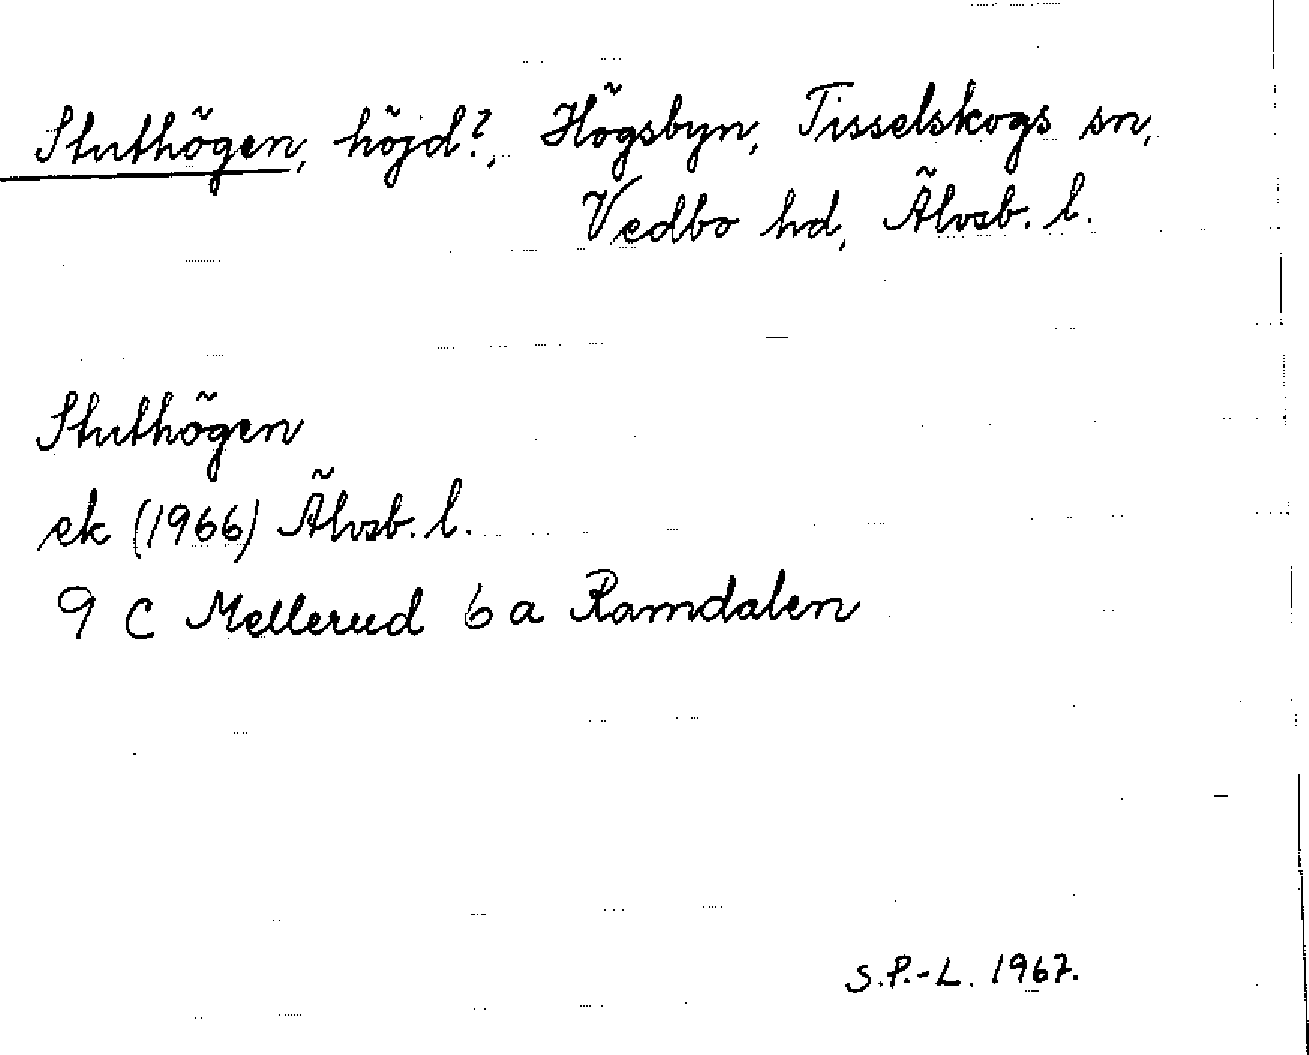 Stuthögen, höjd?, Högsbyn, Tisselskogs sn,
Vedbo hd, Älvsb. l.
Stuthögen
ek (1966) Älvsb. l.
9 C Mellerud 6 a Ramdalen
S.P.-L. 1967.